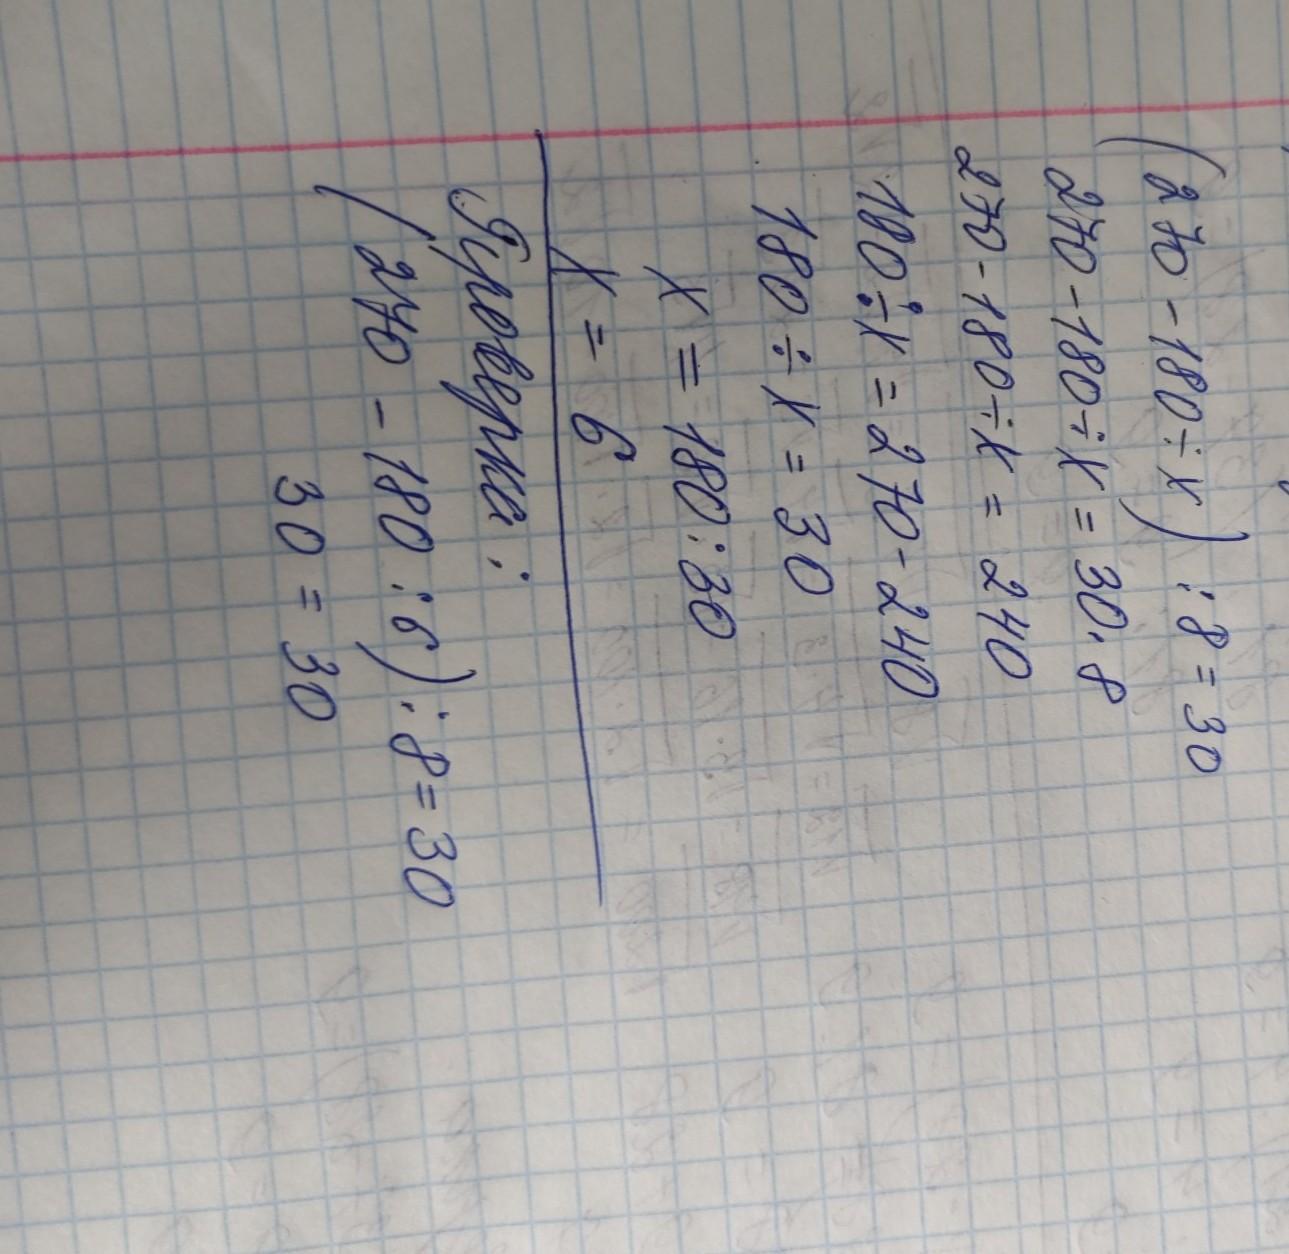 (270 - 180 ÷ x) : 8 = 30
270 - 180 ÷ x = 30 · 8
270 - 180 ÷ x = 240
180 ÷ x = 270 - 240
180 ÷ x = 30
x = 180 : 30
x = 6
Проверка :
(270 - 180 : 6) : 8 = 30
30 = 30